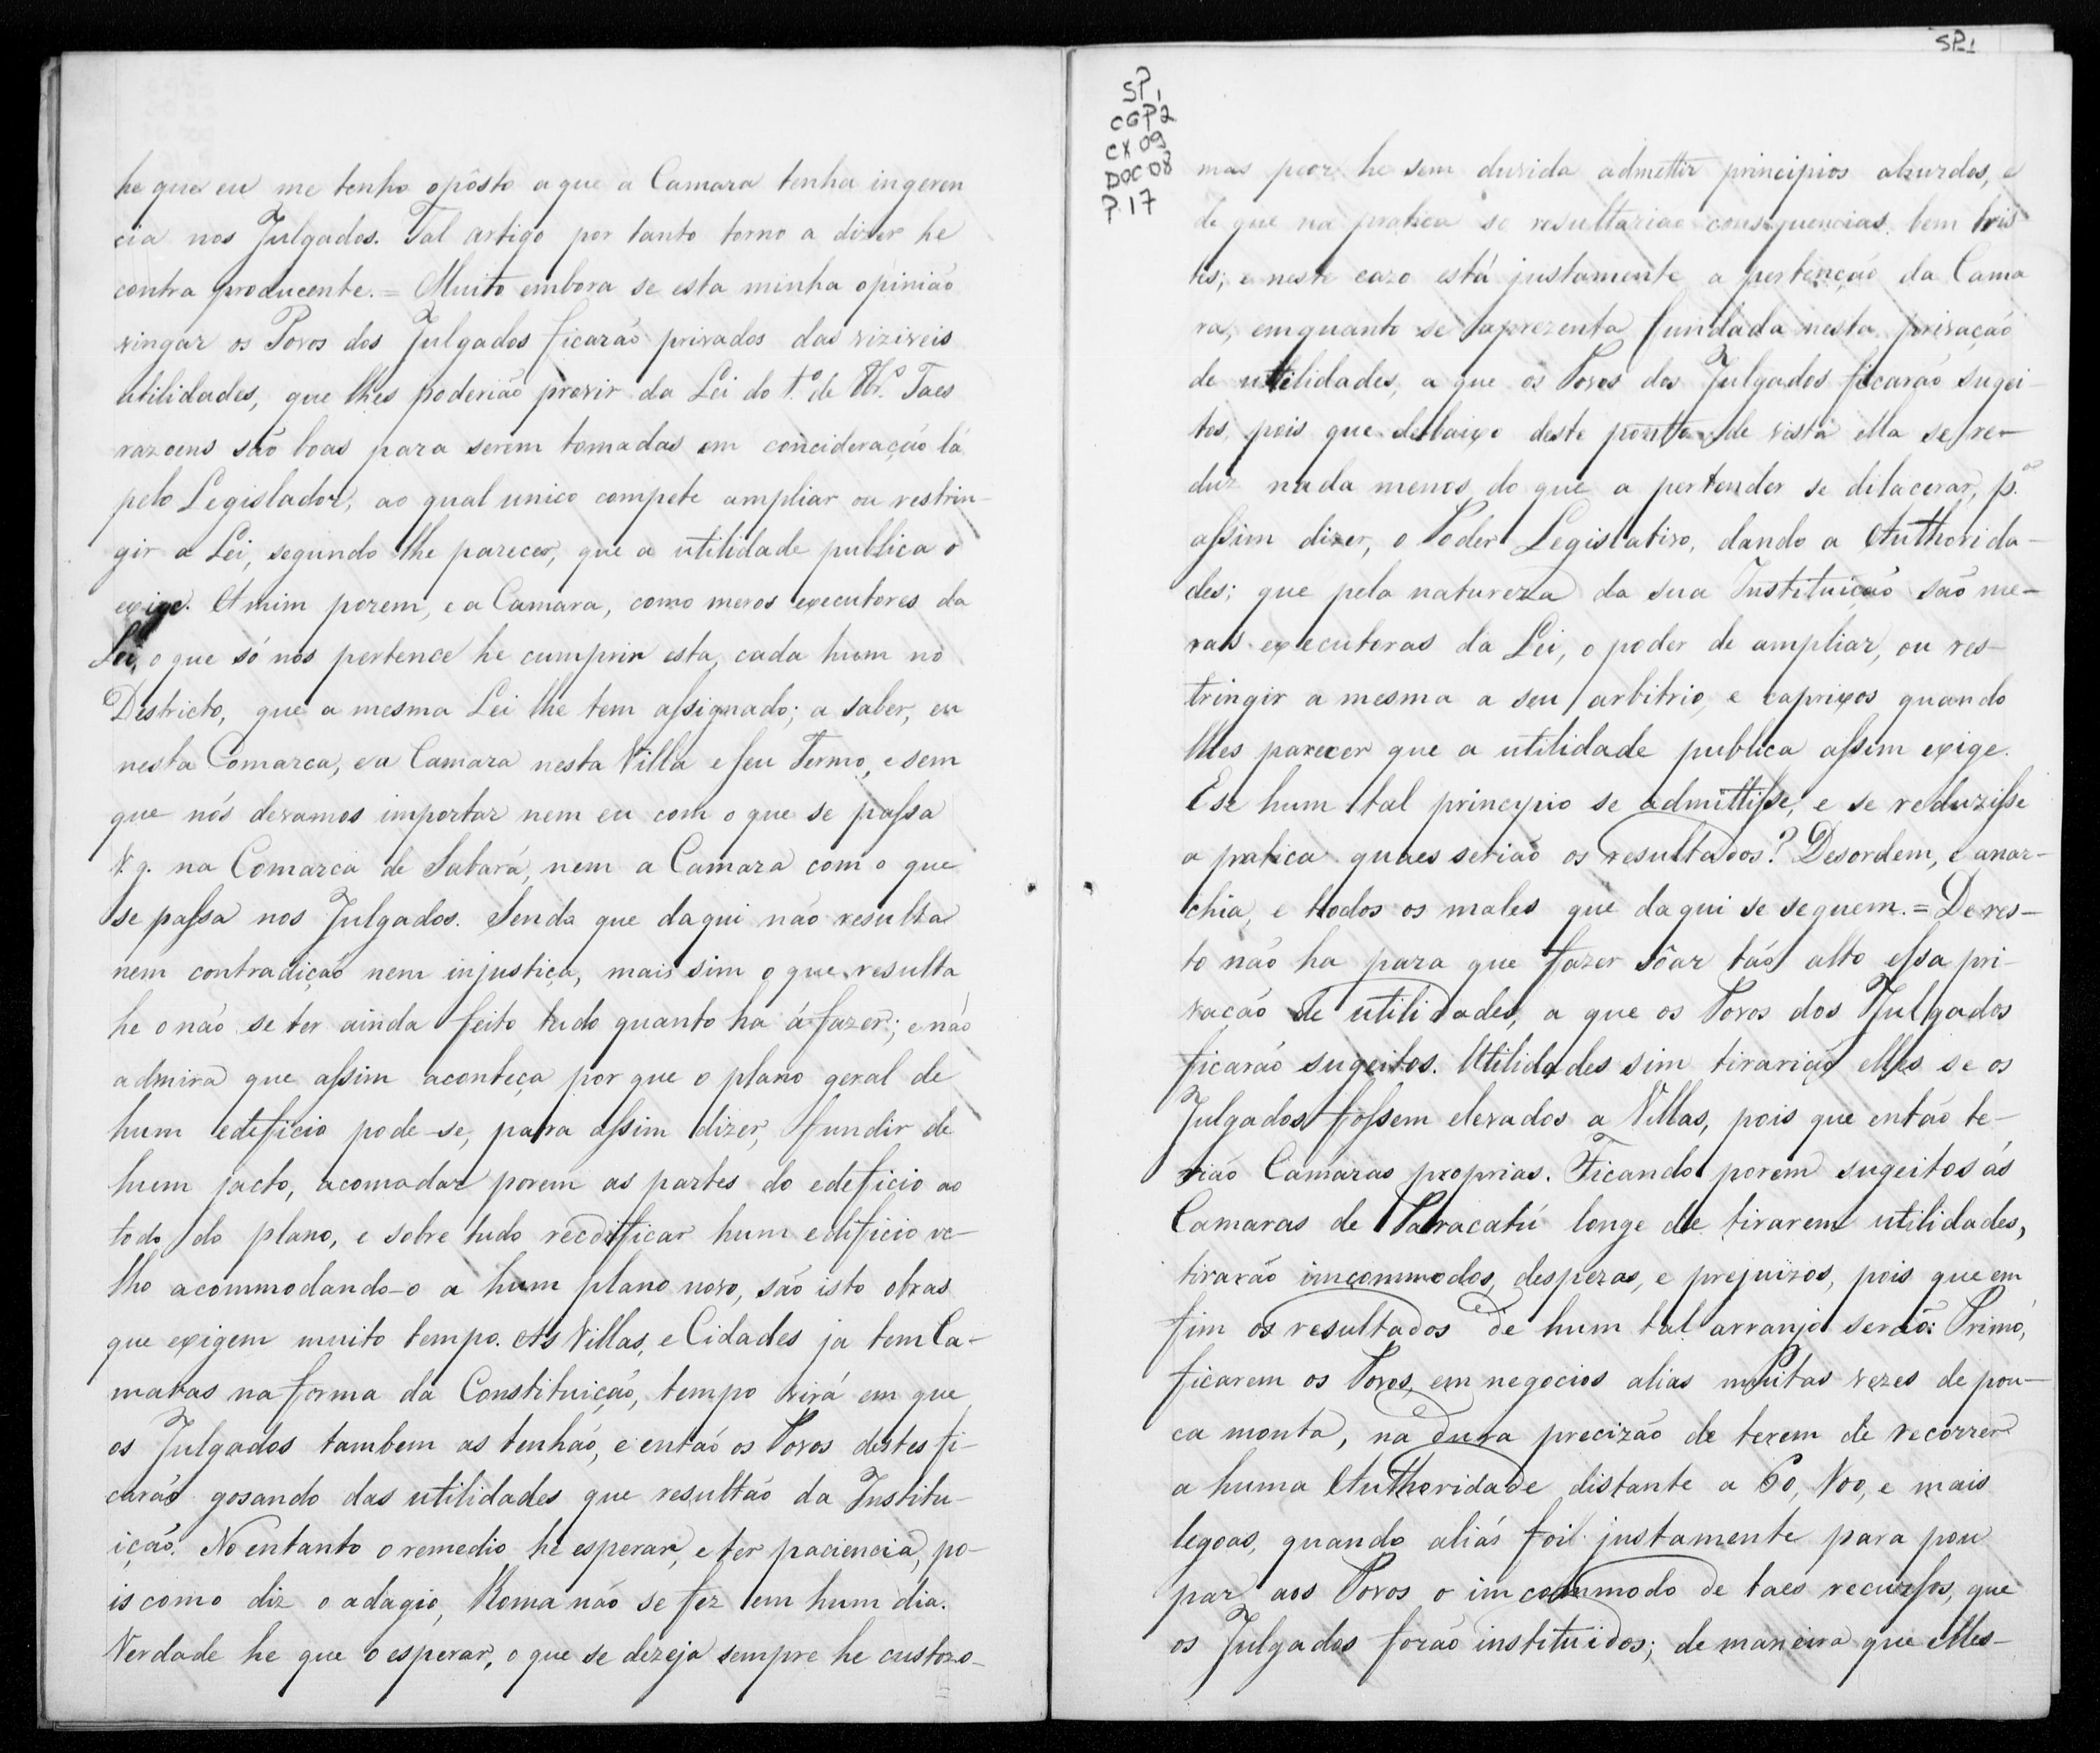 he que eu me tenho opôsto a que a Camara tenha ingeren
cia nos Julgados. Tal artigo por tanto torno a dizer he
contra producente. = Muito embora se esta minha opinião
vingar os Povos dos Julgados ficarão privados das viziveis
utilidades, que lhes poderião provir da Lei do 1.º de 8br.º Taes
razoens são boas para serem tomadas em concideração lá
pelo Legislador, ao qual unico compete ampliar ou restrin-
gir a Lei, segundo lhe parecer, que a utilidade publica o
exige. A mim porem, e a Camara, como meros executores da
Lei, o que só nos pertence he cumprir esta, cada hum no
Districto, que a mesma Lei lhe tem assignado; a saber, eu
nesta Comarca, e a Camara nesta Villa e seu Termo, e sem
que nós devamos importar nem eu com o que se passa
V. g. na Comarca de Sabará, nem a Camara com o que
se passa nos Julgados. Senda que daqui não resulta
nem contradição nem injustiça, mais sim o que resulta
he o não se ter ainda feito tudo quanto ha á fazer; e não
admira que assim aconteça por que o plano geral de
hum edeficio pode-se, para assim dizer, fundir de
hum jacto, acomodar porem as partes do edeficio ao
todo do plano, e sobre tudo reedificar hum edificio ve-
lho acommodando-o a hum plano novo, são isto obras
que exigem muito tempo. As Villas, e Cidades ja tem Ca-
maras na forma da Constituição, tempo virá em que
os Julgados tambem as tenhão, e entaõ os Povos destes fi-
carão gosando das utilidades que resultão da Institu-
ição. No entanto o remedio he esperar, e ter paciencia, po-
is como diz o adagio, Roma não se fez em hum dia.
Verdade he que o esperar, o que se dezeja sempre he custozo-
SP1
SP1
CGP2
CX 09
DOC 08
P. 17
mas peor he sem duvida admettir principios absurdos, e
de que na pratica so resultarião consequencias bem tris
tes; e neste cazo está justamente a pertenção da Cama
ra, emquanto se aprezenta fundada nesta privação
de utilidades, a que os Povos dos Julgados ficarão sugei-
tos, pois que debaixo deste ponto de vista ella se re-
duz nada menos do que a pertender se dilacerar, p.ª
assim dizer, o Poder Legislativo, dando a Authorida-
des; que pela natureza da sua Instituição são me-
ras executoras da Lei, o poder de ampliar, ou res-
tringir a mesma a seu arbitrio, e caprixos quando
lhes parecer que a utilidade publica assim exige.
E se hum tal principio se admittisse, e se reduzisse
a pratica quaes serião os resultados? Desordem, e anar-
chia, e todos os males que daqui se seguem. = De res-
to não ha para que fazer sôar tão alto essa pri-
vacão de utilidades, a que os Povos dos Julgados
ficarão sugeitos. Utilidades sim tirarião elles se os
Julgados fossem elevados a Villas, pois que então te-
rião Camaras proprias. Ficando porem sugeitos ás
Camaras de Parracatú longe de tirarem utilidades,
tirarão imcommodos, despezas, e prejuizos, pois que em
fim os resultados de hum tal arranjo serão: Primó,
ficarem os Povos, em negocios alias muitas vezes de pou-
ca monta, na dura precizão de terem de recorrer
a huma Authoridade distante a 60, 100, e mais
legoas, quando aliás foi justamente para pou
par aos Povos o imcommodo de taes recursos, que
os Julgados forão instituidos; de maneira que elles-